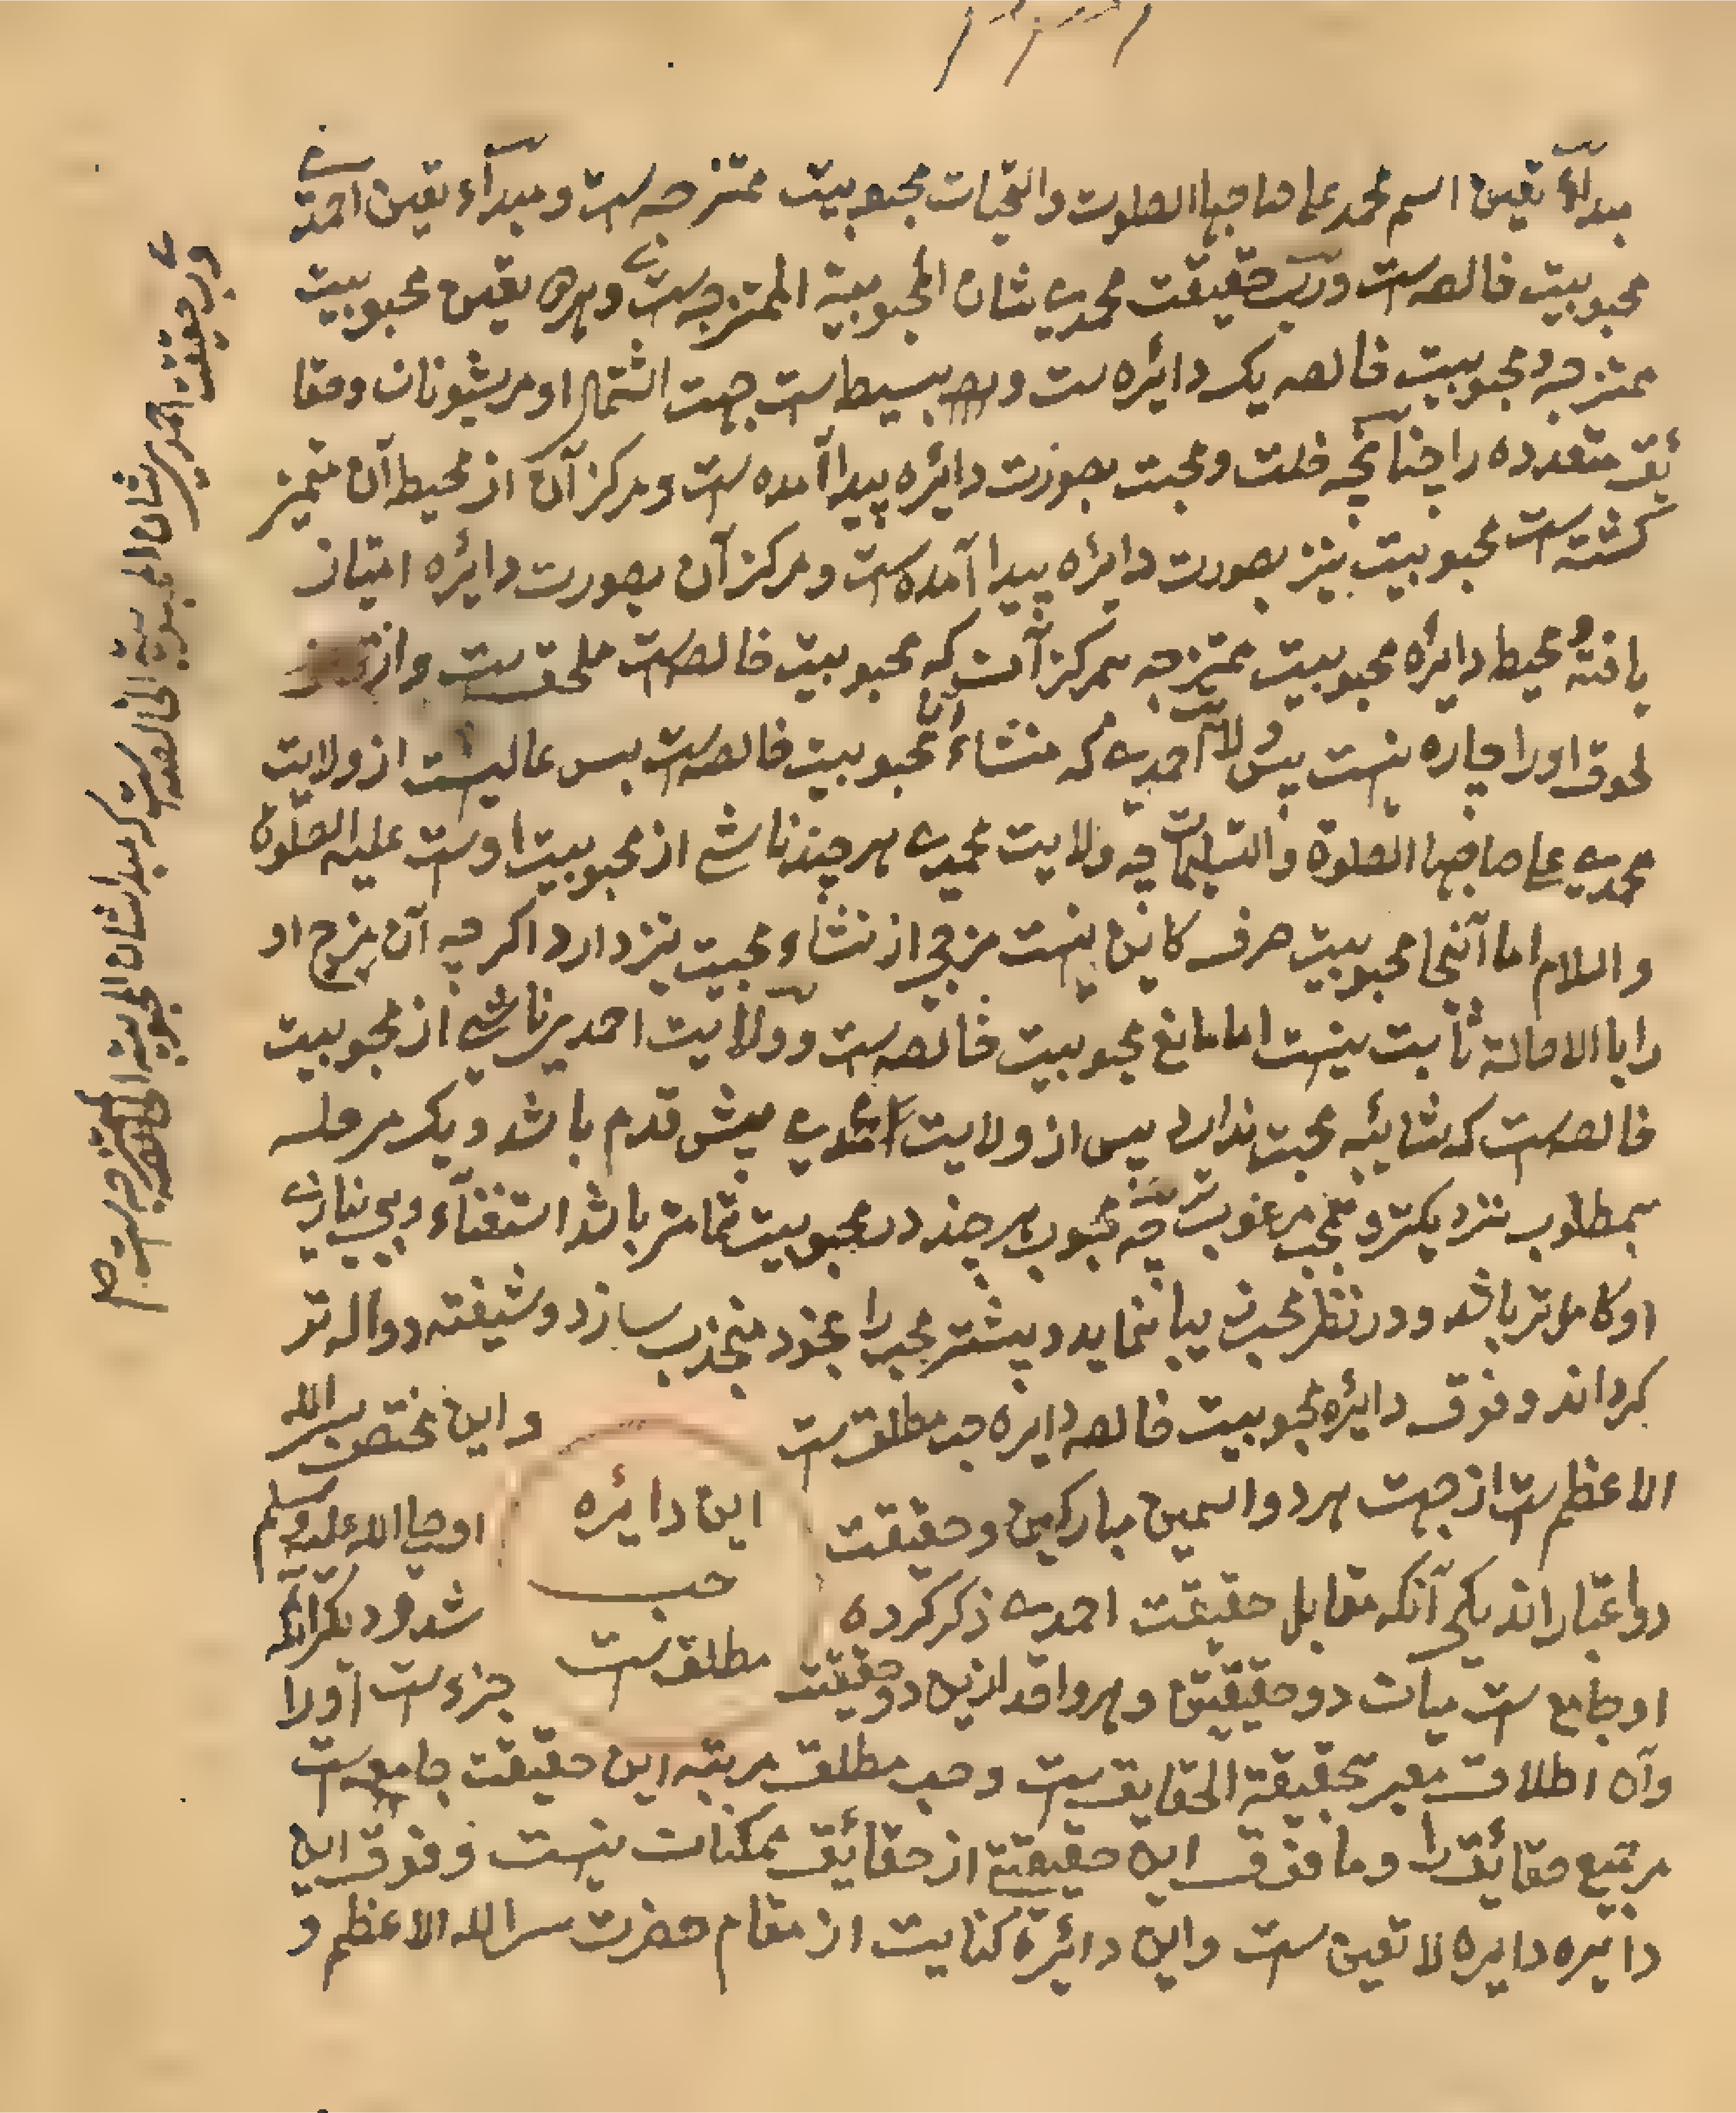 مبدآء تعین اسم محمد علی صاحبها الصلوت والتحیات محبوبیت ممتزجه ست و مبدآء تعین احمدی
محبوبیت خالصه ست ورب حقیقت محمدی شان المحبوبیة الممتزجه ست وهر دو تعین محبوبیت
ممتزجه ومحبوبیت خالصه یک دایٔره ست بسیط ست جهت اشتمال او مر شیونات وحقا
یٔق متعدده را چنآنچه خلت و محبت بصورت دایٔره پیدا آمده ست و مرکز آن از محیط آن متمیز
کشته ست محبوبیت نیز بصورت دایٔره پیدا آمده ست و مرکز آن بصورت دایٔره امتیاز
یافته محیط دایٔره محبوبیت ممتزجه بمرکز آن که محبوبیت خالصه ست ملحق ست و از
لحوق او را چاره نیست پس ولایت احمدی که منشاء آن محبوبیت خالصه ست بس عالیست از ولایت
محمدی علی صاحبها الصلوة والتسلیمات چه ولایت محمدی هر چند ناشی از محبوبیت اوست علیه الصلوة
والسلام اما آنجا محبوبیت صرف کاین نیست مزجی از نشاء محبت نیز دارد اکر چه آن مزج او
را با الاصالة ثابت نیست اما مانع محبوبیت خالصه ست وولایت احمدی ناشی از محبوبیت
خالصه ست که شایٔبه محبت ندارد پس از ولایت محمدی پیش قدم باشد و یک مرحله
بمطلوب نزدیکتر و بمحب مرغوب تر چه محبوب هر چند در محبوبیت تمامتر باشد استغنآء و بی نیازی
او کاملتر باشد و در نظر محب زیبا نماید و پیشتر محب را بخود منجذب سازد و شیفته و واله تر
کرداند و فوق دایٔره محبوبیت خالصه دایره حب مطلق ست و این مختص بسر الله
الاعظم ست از جهت هر دو اسمین مبارکین و حقیقت او صلی الله علیه وسلم
دو اعتبار اند یکی آنکه مقابل حقیقت احمدی ذکر کرده شد و دیکر آنکه
او جامع ست میآن دو حقیقتین و هر واحد ازین دو حقیقت جزء ست او را
این دایٔره
حب
مطلق ست
وآن اطلاق معبر بحقیقة الحقایق ست و حب مطلق مرتبه این حقیقت جامعه ست
مر جمیع حقایٔق را و ما فوق این حقیقتی از حقایٔق ممکنات نیست و فوق این
دایٔره دایره لا تعین ست و این دایٔره کنایت از مقام حضرت سر الله الاعظم و
ورب حقیقت احمدی شان المحبوبیة الخالصه ست که مبدا شان المحبوبیة الممتزجه ست صح